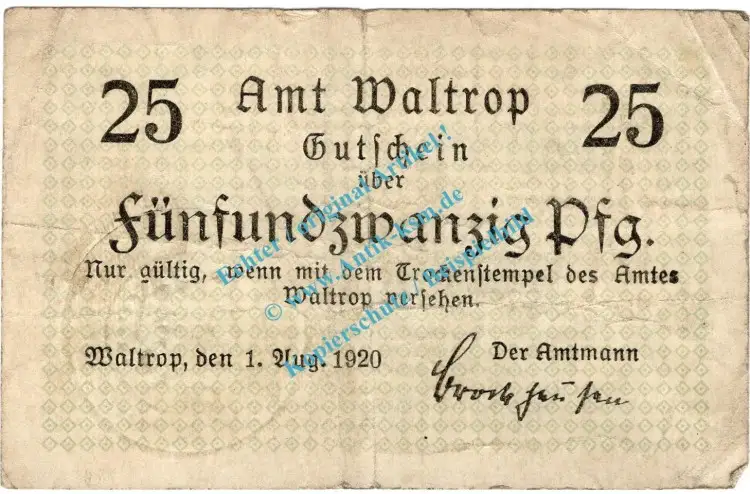 25 Amt Waltrop 25
Gutschein
über
Fünfundzwanzig Pfg.
Nur gültig, wenn mit dem Trockenstempel des Amtes
Waltrop versehen.
Waltrop, den 1. Aug. 1920 Der Amtmann
Brockhausen
Echter / original Artikel !
© www.Antik-ksm.de
Kopierschutz / Beispielbild